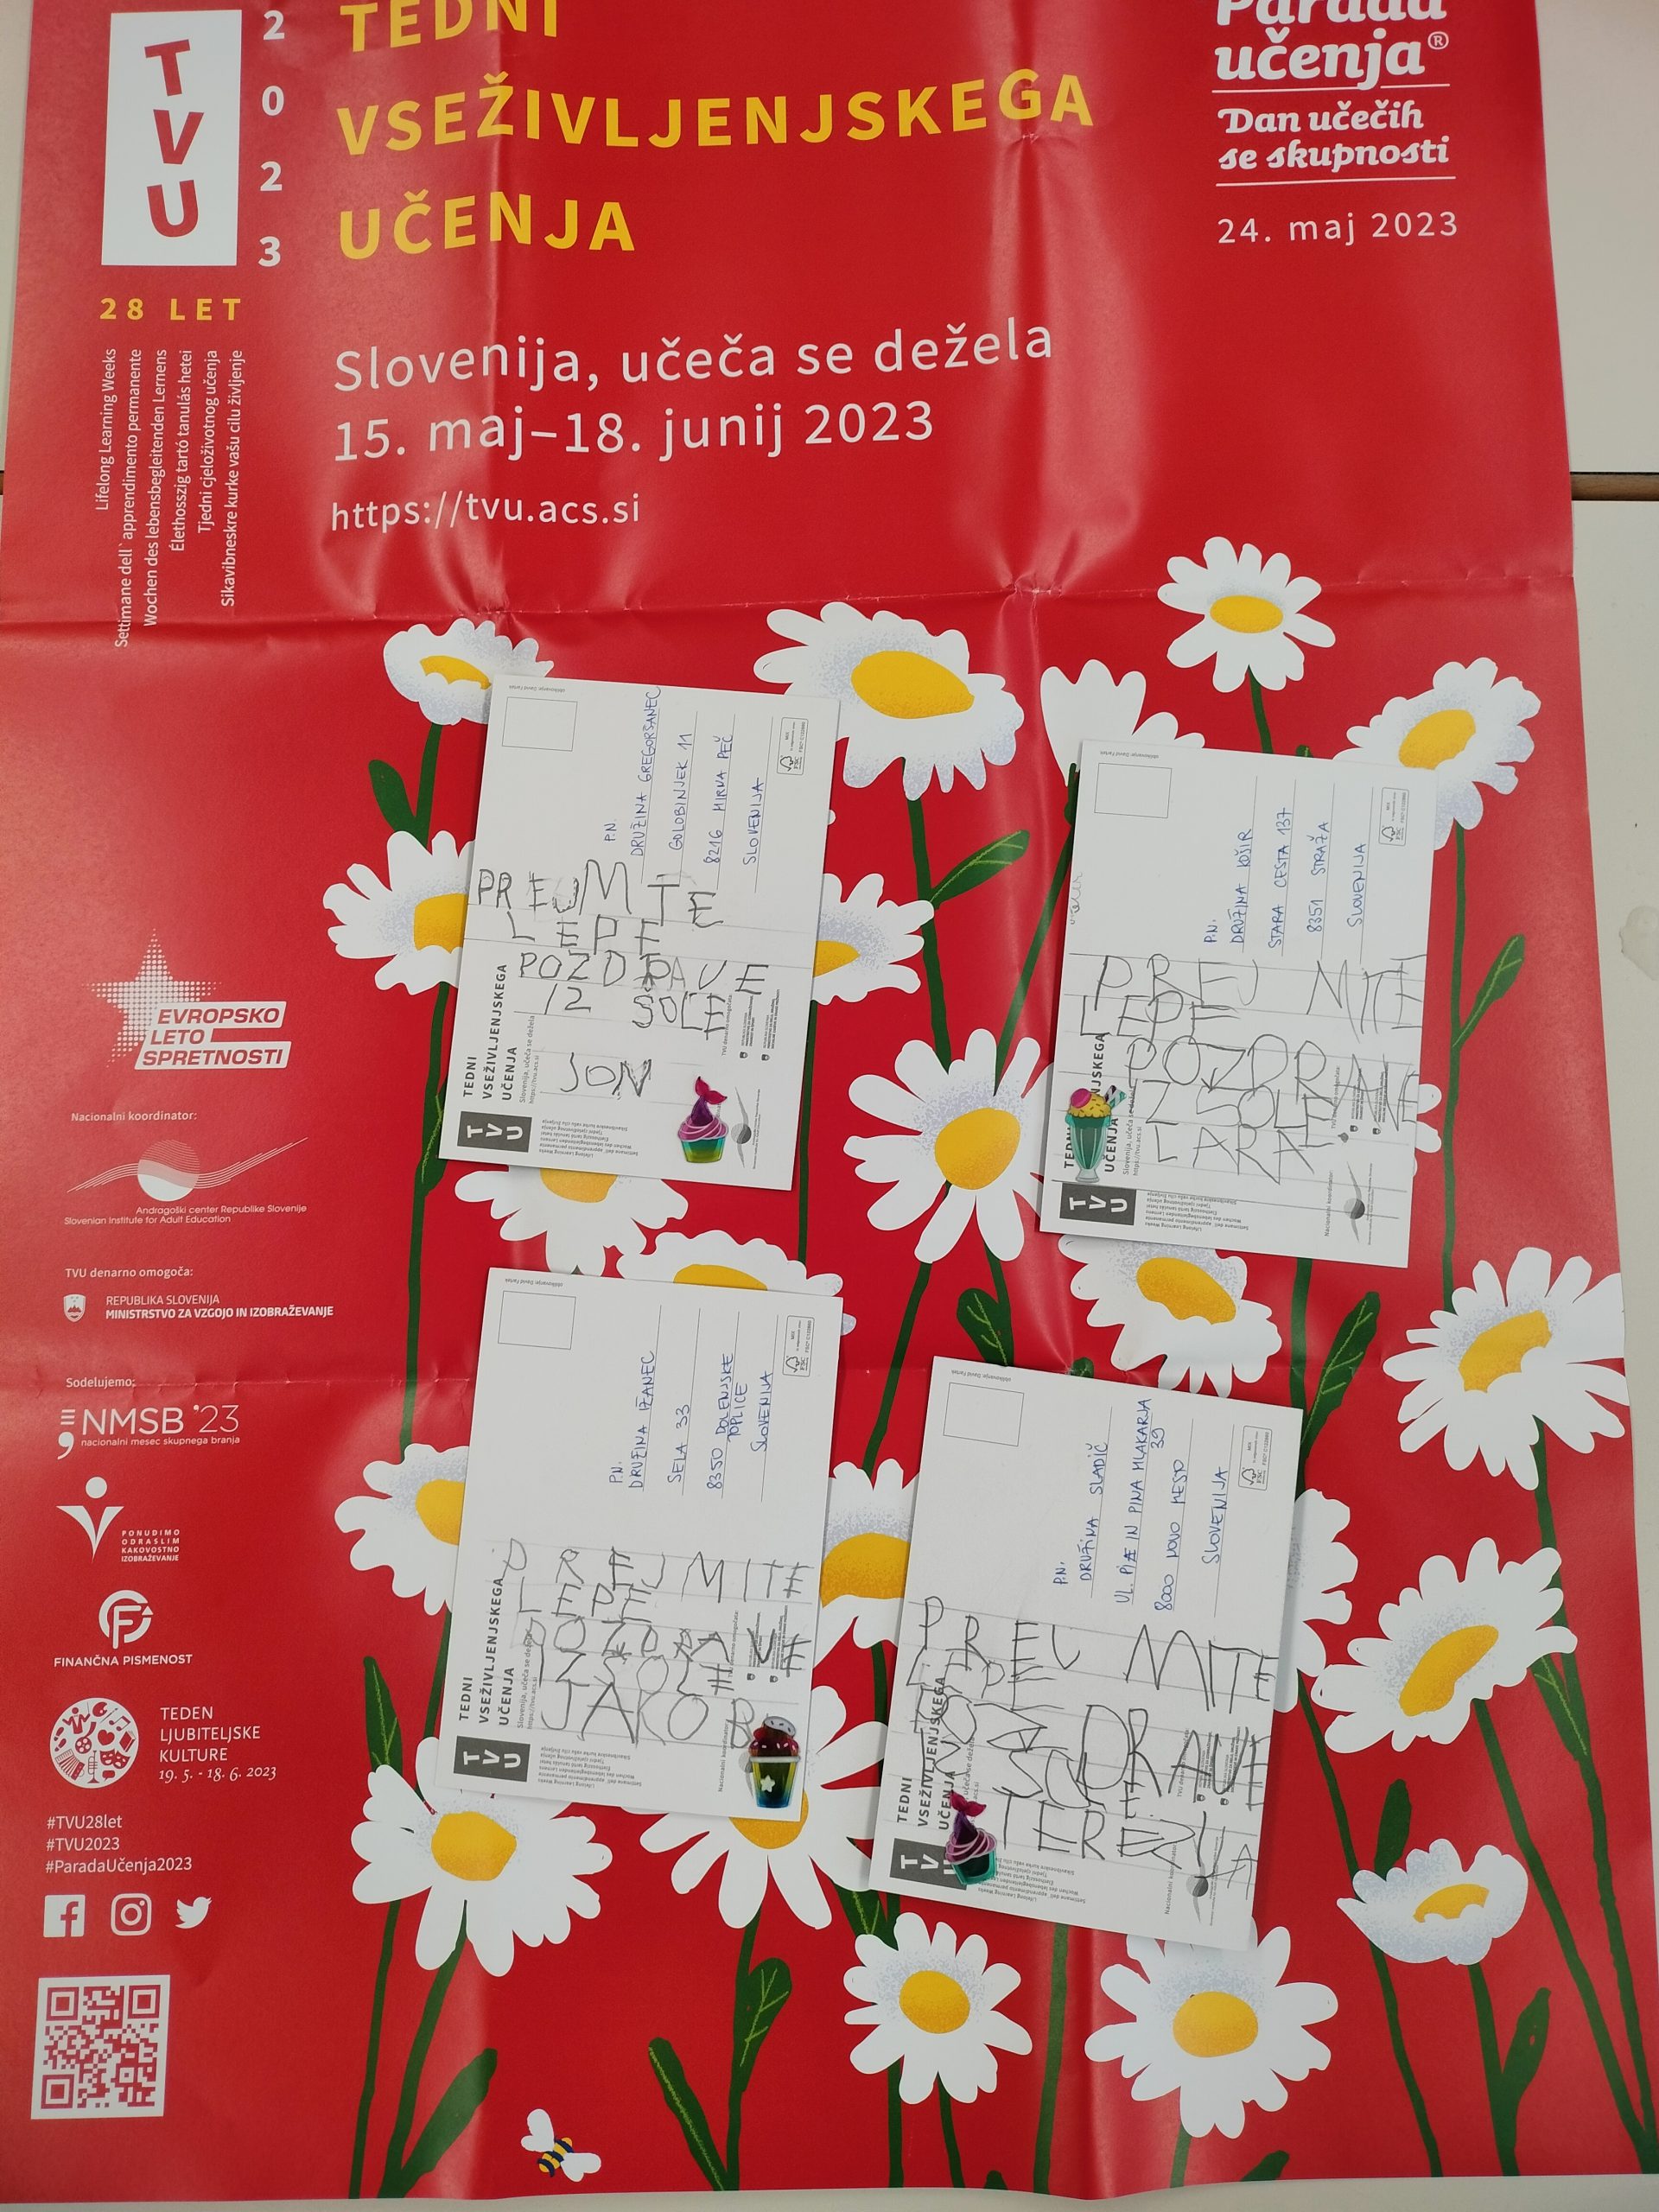 TVU
2023
28 LET
TEDNI
VSEŽIVLJENJSKEGA
UČENJA
Slovenija, učeča se dežela
15. maj–18. junij 2023
https://tvu.acs.si
Parada
učenja®
Dan učečih
se skupnosti
24. maj 2023
Lifelong Learning Weeks
Settimane dell`apprendimento permanente
Wochen des lebensbegleitenden Lernens
Élethosszig tartó tanulás hetei
Tjedni cjeloživotnog učenja
Sikavibneskre kurke vašu cilu življenje
EVROPSKO
LETO
SPRETNOSTI
Nacionalni koordinator:
Andragoški center Republike Slovenije
Slovenian Institute for Adult Education
TVU denarno omogoča:
REPUBLIKA SLOVENIJA
MINISTRSTVO ZA VZGOJO IN IZOBRAŽEVANJE
Sodelujemo:
NMSB '23
nacionalni mesec skupnega branja
PONUDIMO
ODRASLIM
KAKOVOSTNO
IZOBRAŽEVANJE
FINANČNA PISMENOST
TEDEN
LJUBITELJSKE
KULTURE
19. 5. - 18. 6. 2023
#TVU28let
#TVU2023
#ParadaUčenja2023
P.N.
DRUŽINA GREGORŠANEC
GOLOBINJEK 11
8216 MIRNA PEČ
SLOVENIJA
PREJMTE
LEPE
POZDRAVE
IZ ŠOLE
JON
TEDNI
VSEŽIVLJENJSKEGA
UČENJA
Slovenija, učeča se dežela
https://tvu.acs.si
TVU
P.N.
DRUŽINA KOŠIR
STARA CESTA 137
8351 STRAŽA
SLOVENIJA
PREJ MITE
LEPE
POZDRAVE
IZ ŠOLE
LARA
UČENJA
TVU
P.N.
DRUŽINA IŽANEC
SELA 33
8350 DOLENJSKE
TOPLICE
SLOVENIJA
PREJMITE
LEPE
POZDRAVE
IZ ŠOLE
JAKOB
TEDNI
VSEŽIVLJENJSKEGA
UČENJA
TVU
P.N.
DRUŽINA SLADIČ
UL. PIE IN PINA MLAKARJA
39
8000 NOVO MESTO
SLOVENIJA
PREJ MITE
LEPE
POZDRAVE
IZ ŠOLE
TEREZIJA
TEDNI
VSEŽIVLJENJSKEGA
UČENJA
TVU